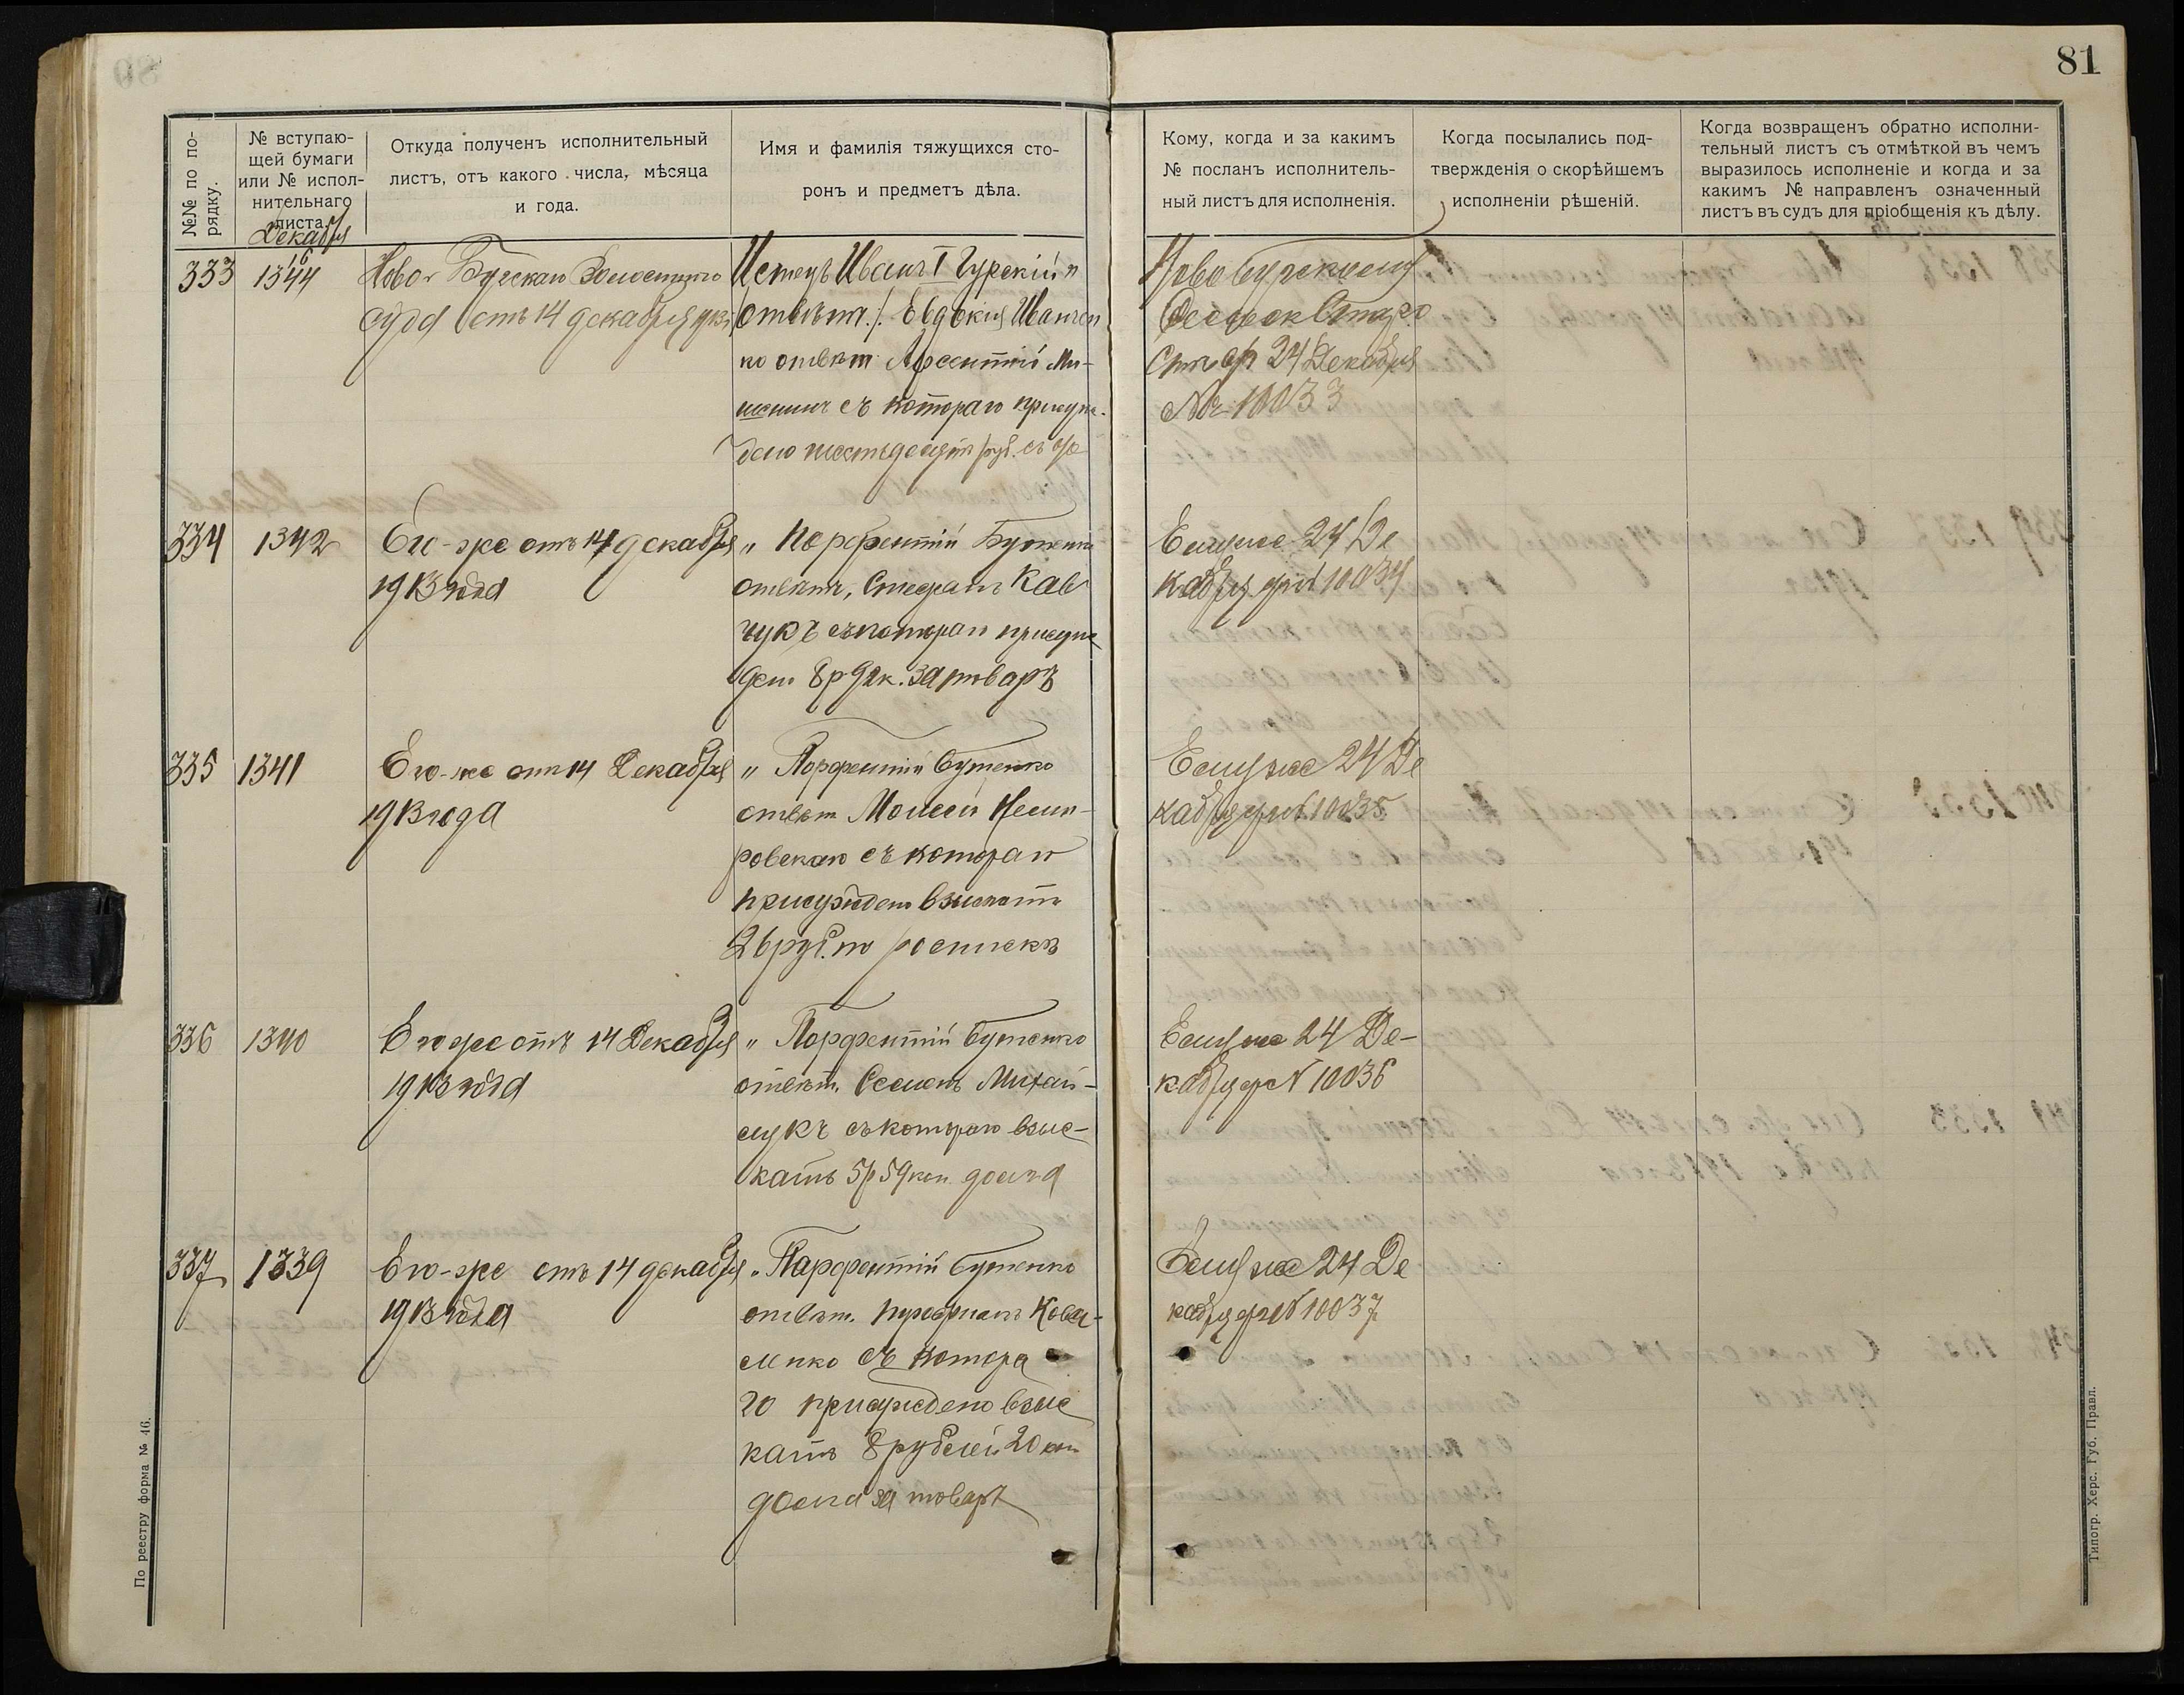 81
№№ по по-
рядку.
№ вступаю-
щей бумаги
или № испол-
нительнаго
листа.
Откуда полученъ исполнительный
листъ, отъ какого числа, мѣсяца
и года.
Имя и фамилія тяжущихся сто-
ронъ и предметъ дѣла.
Кому, когда и за какимъ
№ посланъ исполнитель-
ный листъ для исполненія.
Когда посылались под-
твержденія о скорѣйшемъ
исполненіи рѣшеній.
Когда возвращенъ обратно исполни-
тельный листъ съ отмѣткой въ чемъ
выразилось исполненіе и когда и за
какимъ № направленъ означенный
листъ въ судъ для пріобщенія къ дѣлу.
Декабря
16
333
1344
Ново Бугскаго Волостного
суда отъ 14 декабря
Истецъ Иванъ I Гурскій и
отвѣтч. Евдокія Иванчен
ко отвѣт
съ котораго присуж-
дено шестьдесятъ руб.
Новобугскому
Сельск Старо
24 Декабря
№ 10033
334
1342
Его-же отъ 14 декабря
1913 года
" Порфентій Бутенко
отвѣтч. Стефанъ Кав
чукъ съ котораго присуж
ден 8 р 92 к. за товаръ
Емуже 24 Де
кабря №10034
335
1341
Его-же отъ 14 Декабря
1913 года
" Порфентій Бутенко
отвѣт Моисей
ровскаго съ котораго
присуждено взыскать
26 руб. по роспискѣ
Емуже 24 Де
кабря № 10035
336
1340
Его же отъ 14 Декабря
1913 года
" Порфентій Бутенко
отвѣт. Семенъ Михай-
лукъ съ котораго взыс-
кать 5 р 59 коп долга
Емуже 24 Де-
кабря № 10036
337
1339
Его-же отъ 14 декабря
1913 года
" Парфентій Бутенко
отвѣт. Ковал-
енко съ котора
го присуждено взыс
кать 8 рублей 20 коп
долга за товаръ
Емуже 24 Де
кабря № 10037
По реестру форма № 46.
Типогр. Херс. Губ. Правл.